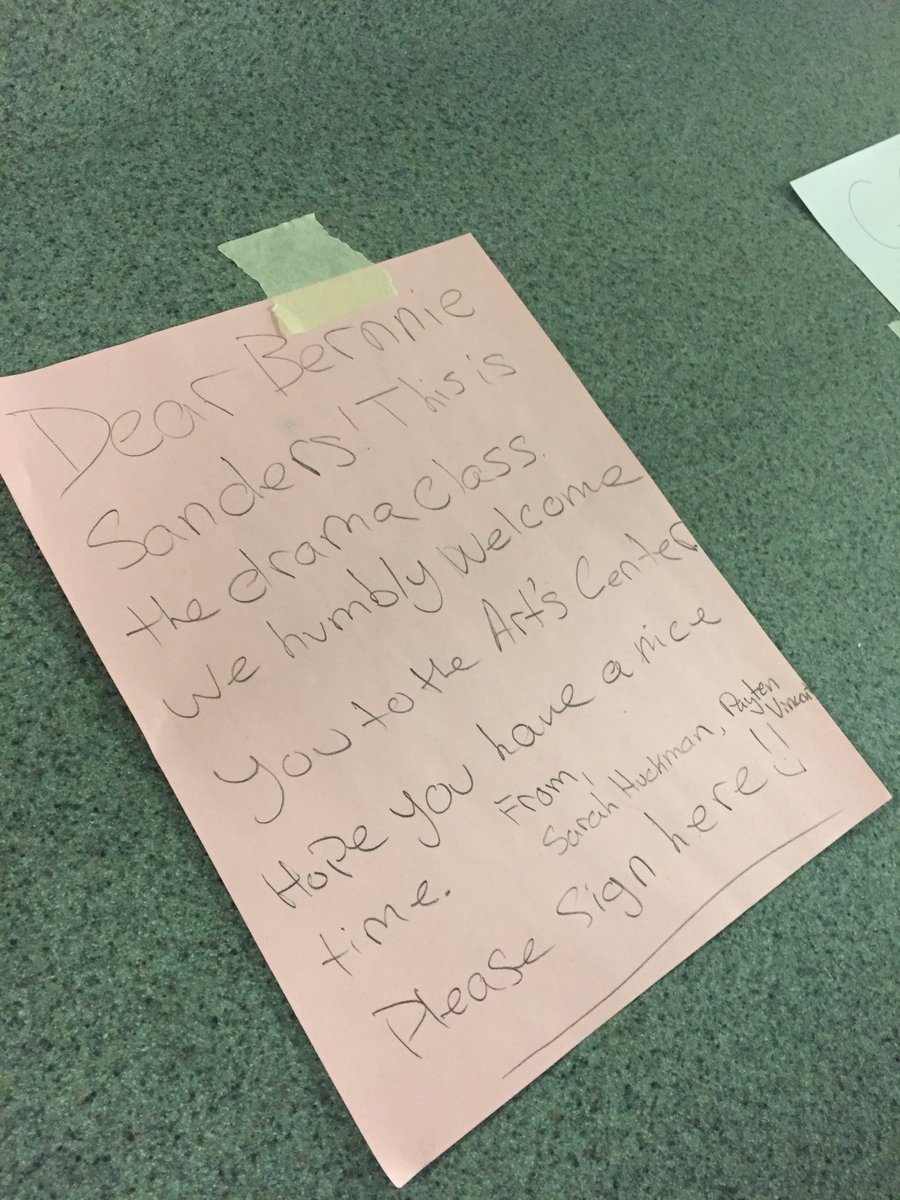 Dear Bernnie
Sanders! This is
the drama class.
We humbly welcome
you to the Art's Center
Hope you have a nice
time.
From,
Sarah Huckman, Payten
Please Sign here